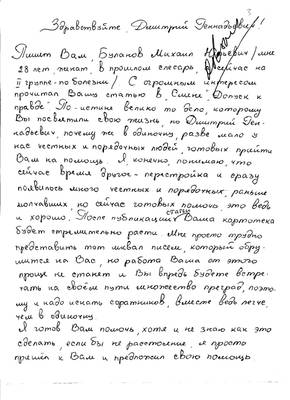 Здравствуйте, Дмитрий Геннадьевич!
Пишет Вам, Буланов Михаил Юрьевич /мне
28 лет, женат, в прошлом слесарь, а сейчас на
II группе по болезни/ С огромным интересом
прочитал Вашу статью в „Смене" „Допуск к
правде" По-истине велико то дело, которому
Вы посвятили свою жизнь, но Дмитрий Ген-
надьевич, почему же в одиночку, разве мало у
нас честных и порядочных людей, готовых прийти
Вам на помощь. Я, конечно, понимаю, что
сейчас время другое - перестройка и сразу
появилось много честных и порядочных, раньше
молчавших, но сейчас готовых помочь, это ведь
и хорошо. После публикации статьи Ваша картотека
будет стремительно расти. Мне просто трудно
представить тот шквал писем, который обру-
шится на Вас, но работа Ваша от этого
проще не станет и Вы впредь будете встре-
чать на своём пути множество преград, поэто-
му и надо искать соратников, вместе ведь легче,
чем в одиночку.
Я готов Вам помочь, хотя и не знаю как это
сделать, если бы не расстояние, я просто
пришёл к Вам и предложил свою помощь